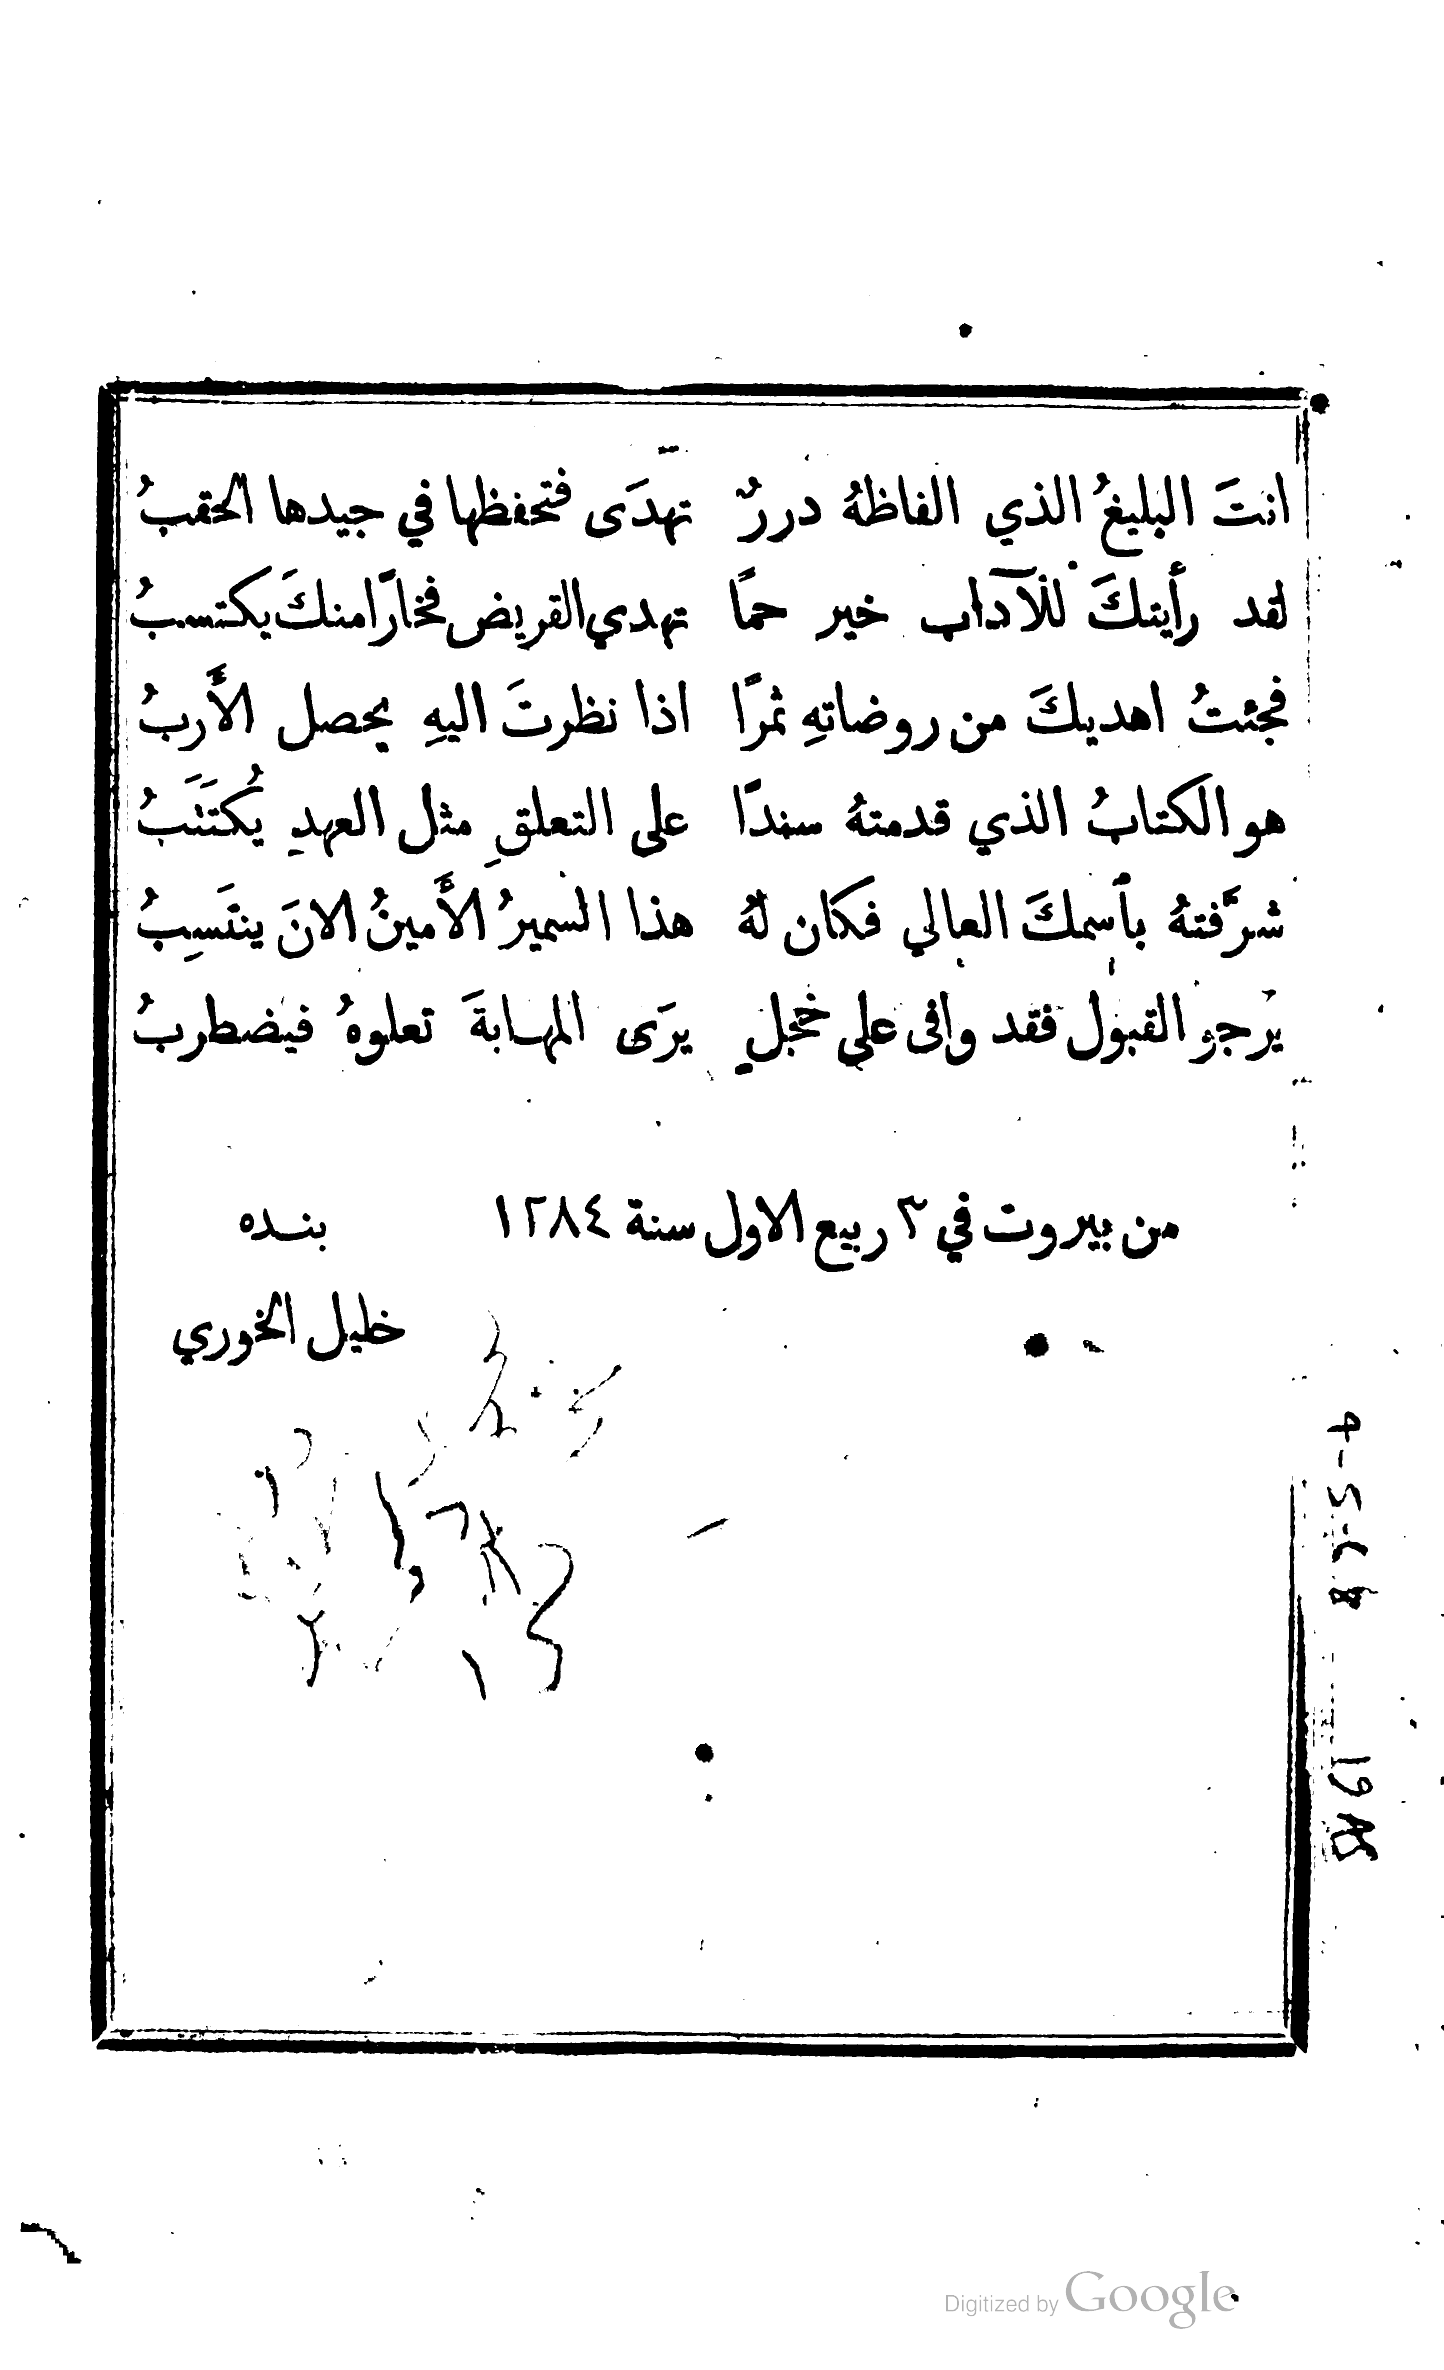 انتَ البليغُ الذي الفاظهُ دررٌ تهدَى فتحفظها في جيدها الحقبُ
لقد رأيتكَ للآداب خير حمًا تهدي القريض فخارًا منكَ يكتسبُ
فجئتُ اهديكَ من روضاتهِ ثمرًا اذا نظرتَ اليهِ يحصل الأَربُ
هو الكتابُ الذي قدمتهُ سندًا على التعلقِ مثل العهدِ يُكتَتَبُ
شرَّفتهُ بأسمكَ العالي فكان لهُ هذا السميرُ الأَمينُ الانَ ينتَسِبُ
يَرجو القبول فقد وافى على خجلٍ يرَى المهابةَ تعلوهُ فيضطربُ
من بيروت في ٣ ربيع الاول سنة ١٢٨٤ بنده
خليل الخوري
Digitized by Google